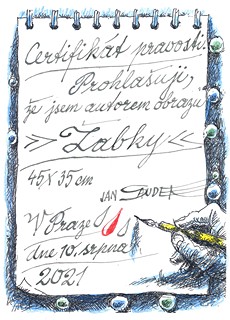 Certifikát pravosti.
Prohlašuji,
že jsem autorem obrazu
» Žabky «
45 x 35 cm
JAN
V Praze
dne 10. srpna
2021